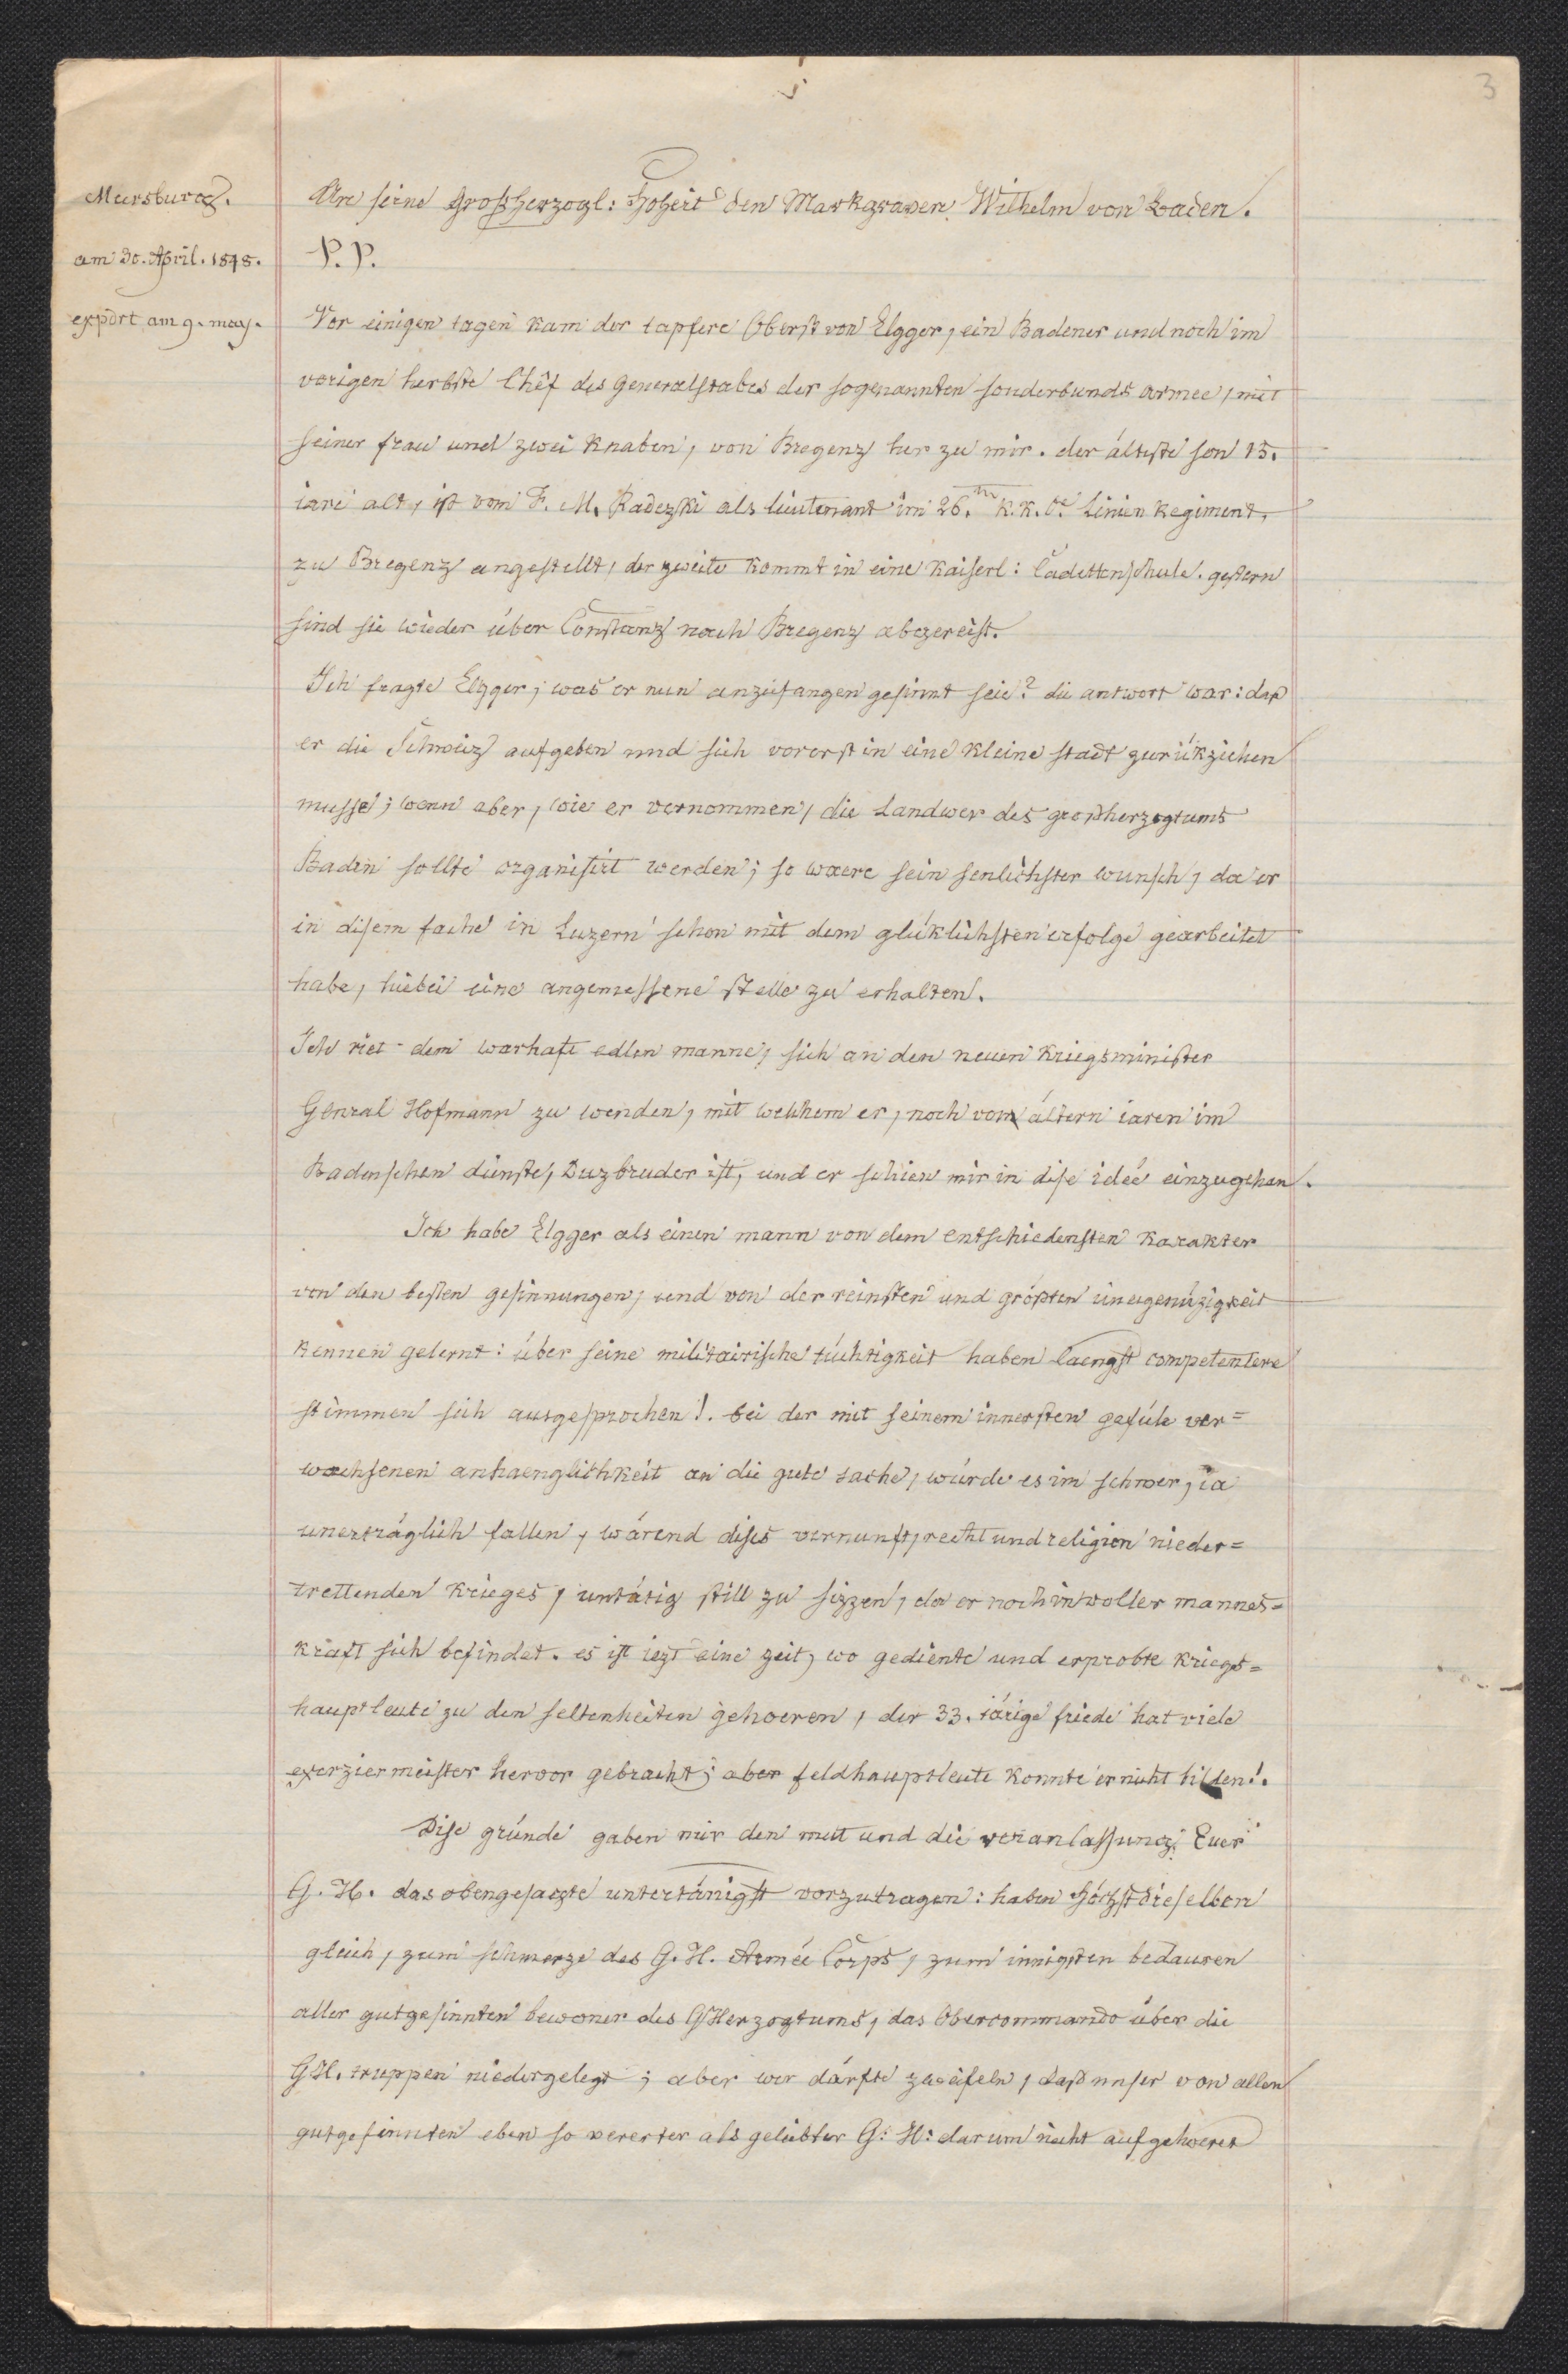 3
Mersburg.
am 30. April. 1848.
expdrt am 9. may.
An seine Großherzogl: Hoheit den Markgraven Wilhelm von Baden.
P. P.
Vor einigen tagen kam der tapfere Oberst von Elgger, ein Badener und noch im
vorigen herbste Chéf des Generalstabes der sogenannten sonderbunds armee, mit
seiner frau und zwei Knaben, von Bregenz her zu mir. der álteste son 15.
iare alt, ist vom F. M. Radezki als lieutenant im 26.tn K. K. Oe. Linien Regiment,
zu Bregenz angestellt, der zweite kommt in eine Kaiserl: Cadettenschule. gestern
sind sie wieder úber Constanz nach Bregenz abgereist.
Ich fragte Elgger, was er nun anzufangen gesinnt seie? die antwort war: daß
er die Schweiz aufgeben und sich vorerst in eine kleine stadt zurúkziehen
musse; wenn aber, wie er vernommen, die Landwer des großherzogtums
Baden sollte organisirt werden; so waere sein senlichster wunsch, da er
in disem fache in Luzern schon mit dem glúklichsten erfolge gearbeitet
habe, hiebei eine angemessene stelle zu erhalten.
Ich riet dem warhaft edlen manne, sich an den neuen Kriegsminister
Genral Hofmann zu wenden, mit welchem er, noch von áltern iaren im
Badenschen dienste, Duzbruder ist, und er schien mir in dise idée einzugehen.
Ich habe Elgger als einen mann von dem entschiedensten karakter
von den besten gesinnungen, und von der reinsten und grösten uneigenúzigkeit
kennen gelernt: úber seine militairische túchtigkeit haben laengst competentere
stimmen sich ausgesprochen!. bei der mit seinem innersten gefúle ver=
wachsenen anhaenglichkeit an die gute sache, wúrde es im schwer, ia
unertráglich fallen, wárend dises vernunft, recht und religion nieder=
trettenden krieges, untátig still zu sizzen, da er noch in voller mannes=
kraft sich befindet. es ist iezt eine zeit, wo gediente und erprobte kriegs=
hauptleute zu den seltenheiten gehoeren, der 33. iárige friede hat viele
exerziermeister hervor gebracht; aber feldhauptleute konnte er nicht bilden!.
Dise grúnde gaben mir den mut und die veranlassung Euer
G. H. das obengesagte untertánigst vorzutragen: haben Höchstdieselben
gleich, zum schmerze des G. H. Armée Corps, zum innigsten bedauren
aller gutgesinnten bewoner des GHerzogtums, das Obercommando úber die
GH. truppen niedergelegt; aber wer dárfte zweifeln, daß unser von allen
gutgesinnten eben so vererter als geliebter G: H: darum nicht aufgehoeret